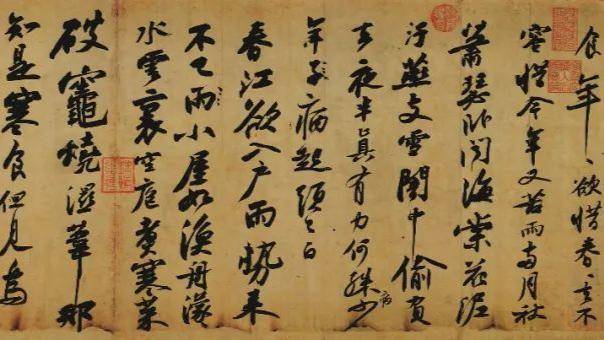 食年〻欲惜春〻去不
容惜今年又苦雨兩月秋
蕭瑟臥聞海棠花泥
污燕支雪闇中偷負
去夜半真有力何殊少病
年子病起頭已白
春江欲入戶雨勢來
不已雨小屋如漁舟濛〻
水雲裏空庖煮寒菜
破竈燒濕葦那
知是寒食但見烏